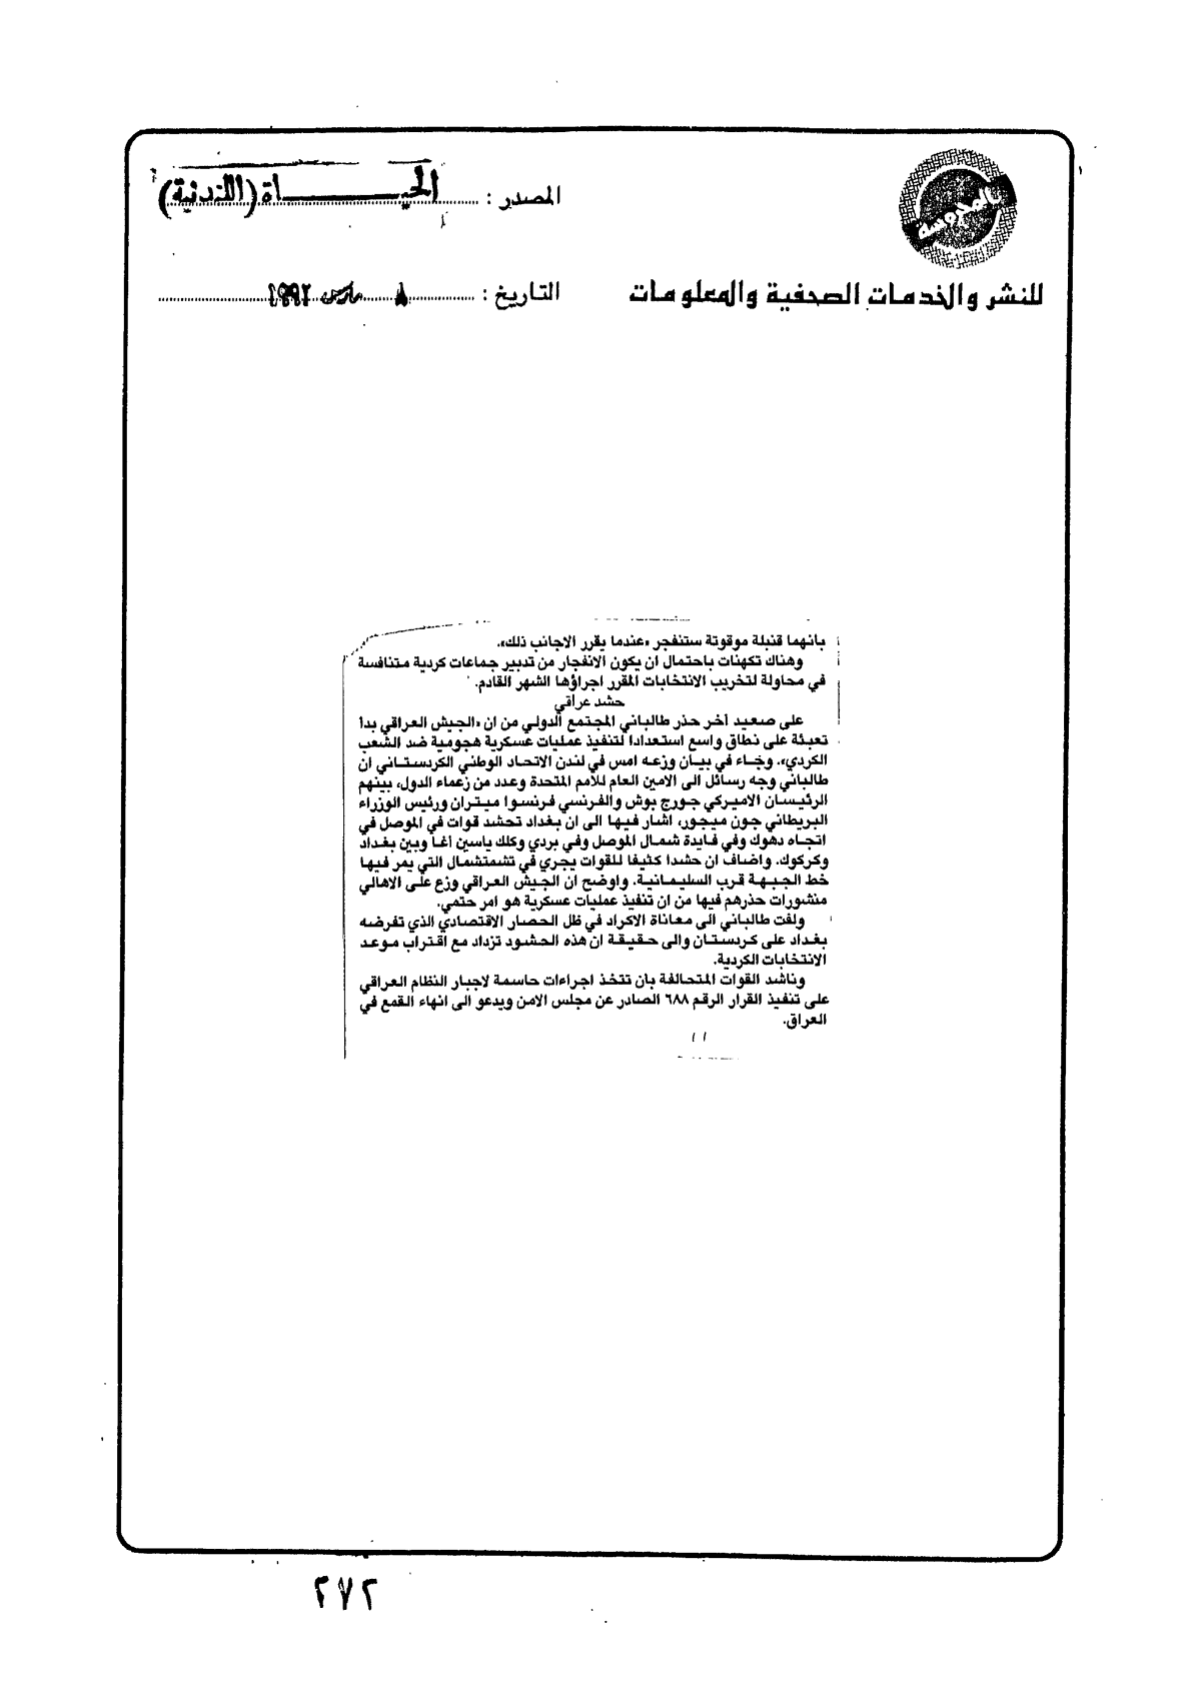 المحروسة
المصدر : الحياة (اللندنية)
للنشر والخدمات الصحفية والمعلومات
التاريخ : ٨ مارس ١٩٩٢
بانهما قنبلة موقوتة ستنفجر «عندما يقرر الاجانب ذلك».
وهناك تكهنات باحتمال ان يكون الانفجار من تدبير جماعات كردية متنافسة
في محاولة لتخريب الانتخابات المقرر اجراؤها الشهر القادم.
حشد عراقي
على صعيد آخر حذر طالباني المجتمع الدولي من ان «الجيش العراقي بدأ
تعبئة على نطاق واسع استعداداً لتنفيذ عمليات عسكرية هجومية ضد الشعب
الكردي». وجاء في بيان وزعه امس في لندن الاتحاد الوطني الكردستاني ان
طالباني وجه رسائل الى الامين العام للأمم المتحدة وعدد من زعماء الدول، بينهم
الرئيسان الاميركي جورج بوش والفرنسي فرنسوا ميتران ورئيس الوزراء
البريطاني جون ميجور، اشار فيها الى ان بغداد تحشد قوات في الموصل في
اتجاه دهوك وفي فايدة شمال الموصل وفي بردي وكلك ياسين آغا وبين بغداد
وكركوك. واضاف ان حشداً كثيفاً للقوات يجري في تشمتشمال التي يمر فيها
خط الجبهة قرب السليمانية. واوضح ان الجيش العراقي وزع على الاهالي
منشورات حذرهم فيها من ان تنفيذ عمليات عسكرية هو امر حتمي.
ولفت طالباني الى معاناة الاكراد في ظل الحصار الاقتصادي الذي تفرضه
بغداد على كردستان والى حقيقة ان هذه الحشود تزداد مع اقتراب موعد
الانتخابات الكردية.
وناشد القوات المتحالفة بان تتخذ اجراءات حاسمة لاجبار النظام العراقي
على تنفيذ القرار الرقم ٦٨٨ الصادر عن مجلس الامن ويدعو الى انهاء القمع في
العراق.
٢٧٢